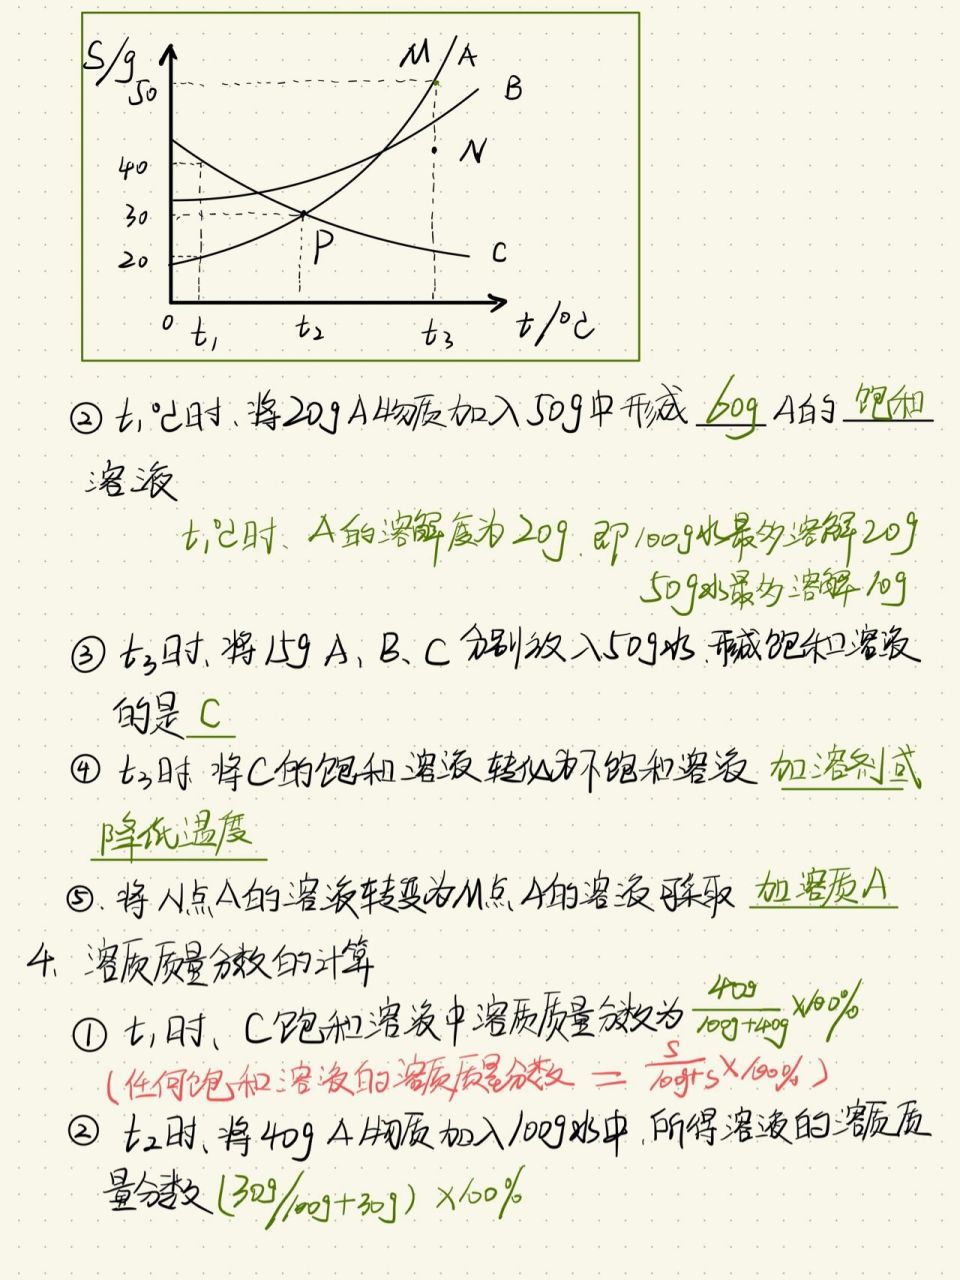 S/g
M A
50
B
N
40
30
P
20
C
0 t₁ t₂ t₃ t/℃
② t₁℃时、将20gA物质加入50g中形成 60g A的 饱和
溶液
t₁℃时、A的溶解度为20g.即100g水最多溶解20g
50g水最多溶解10g
③ t₃时、将15g A、B、C分别放入50g水.形成饱和溶液
的是 C
④ t₃时 将C的饱和溶液转化为不饱和溶液 加溶剂或
降低温度
⑤.将N点A的溶液转变为M点A的溶液可采取 加溶质A
4、溶质质量分数的计算
① t₁时、C饱和溶液中溶质质量分数为 40g/(100g+40g) ×100%
(任何饱和溶液的溶质质量分数 = S/(100g+S) ×100%)
② t₂时、将40g A物质加入100g水中.所得溶液的溶质质
量分数(30g/100g+30g) ×100%